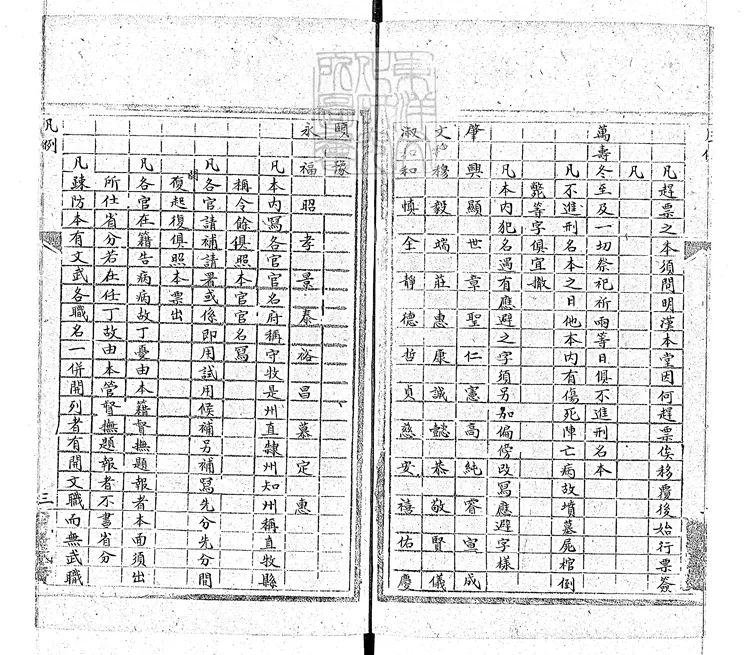 凡趕票之本須問明漢本堂因何趕票俟移覆後始行票簽
凡
萬壽冬至及一切祭祀祈雨等日俱不進刑名本
凡不進刑名本之日他本内有傷死陣亡病故墳墓屍棺倒
斃等字俱宜撤
凡本内犯名遇有應避之字須另剔偏傍改寫應避字樣
肇興顯世章聖仁憲高純睿宣成
文穆毅端莊惠康誠懿恭敬賢儀
淑和慎全靜德哲貞慈安禧佑慶
頤豫
永福昭孝景泰裕昌慕定惠
凡本内寫各官官名府稱守牧是州直隸州知州稱直牧縣
稱令餘俱照本官官名寫
凡各官請補請署或係即用試用候補另補寫先分先分間
復起復俱照本票出
凡各官在籍告病病故丁憂由本籍督撫題報者本面須出
所仕省分若在任丁故由本管督撫題報者不書省分
凡疎防本有文武各職名一併開列者有開文職而無武職
凡例
三